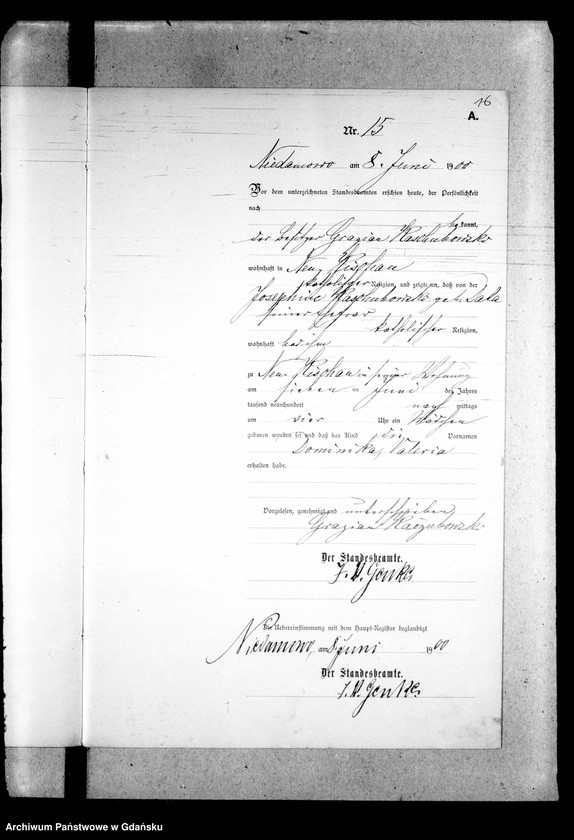 16
A.
Nr. 15
Niedamowo am 8. Juni 1900
Vor dem unterzeichneten Standesbeamten erschien heute, der Persönlichkeit
nach
bekannt,
der Besitzer Grazian Kaschubowski
wohnhaft in Neu-Kischau
katholischer Religion, und zeigte an, daß von der
Josephine Kaschubowski geb. Data
seiner Ehefrau
katholischer Religion,
wohnhaft bei ihm
zu Neu-Kischau in seiner Wohnung
am sieben ten Juni des Jahres
tausend neunhundert nach mittags
um vier Uhr ein Mädchen
geboren worden sei und daß das Kind die Vornamen
Dominika, Valeria
erhalten habe.
Vorgelesen, genehmigt und unterschrieben
Grazian Kaszubowski
Der Standesbeamte.
Die Uebereinstimmung mit dem Haupt-Register beglaubigt
Niedamowo, am 8 Juni 1900
Der Standesbeamte.
Archiwum Państwowe w Gdańsku